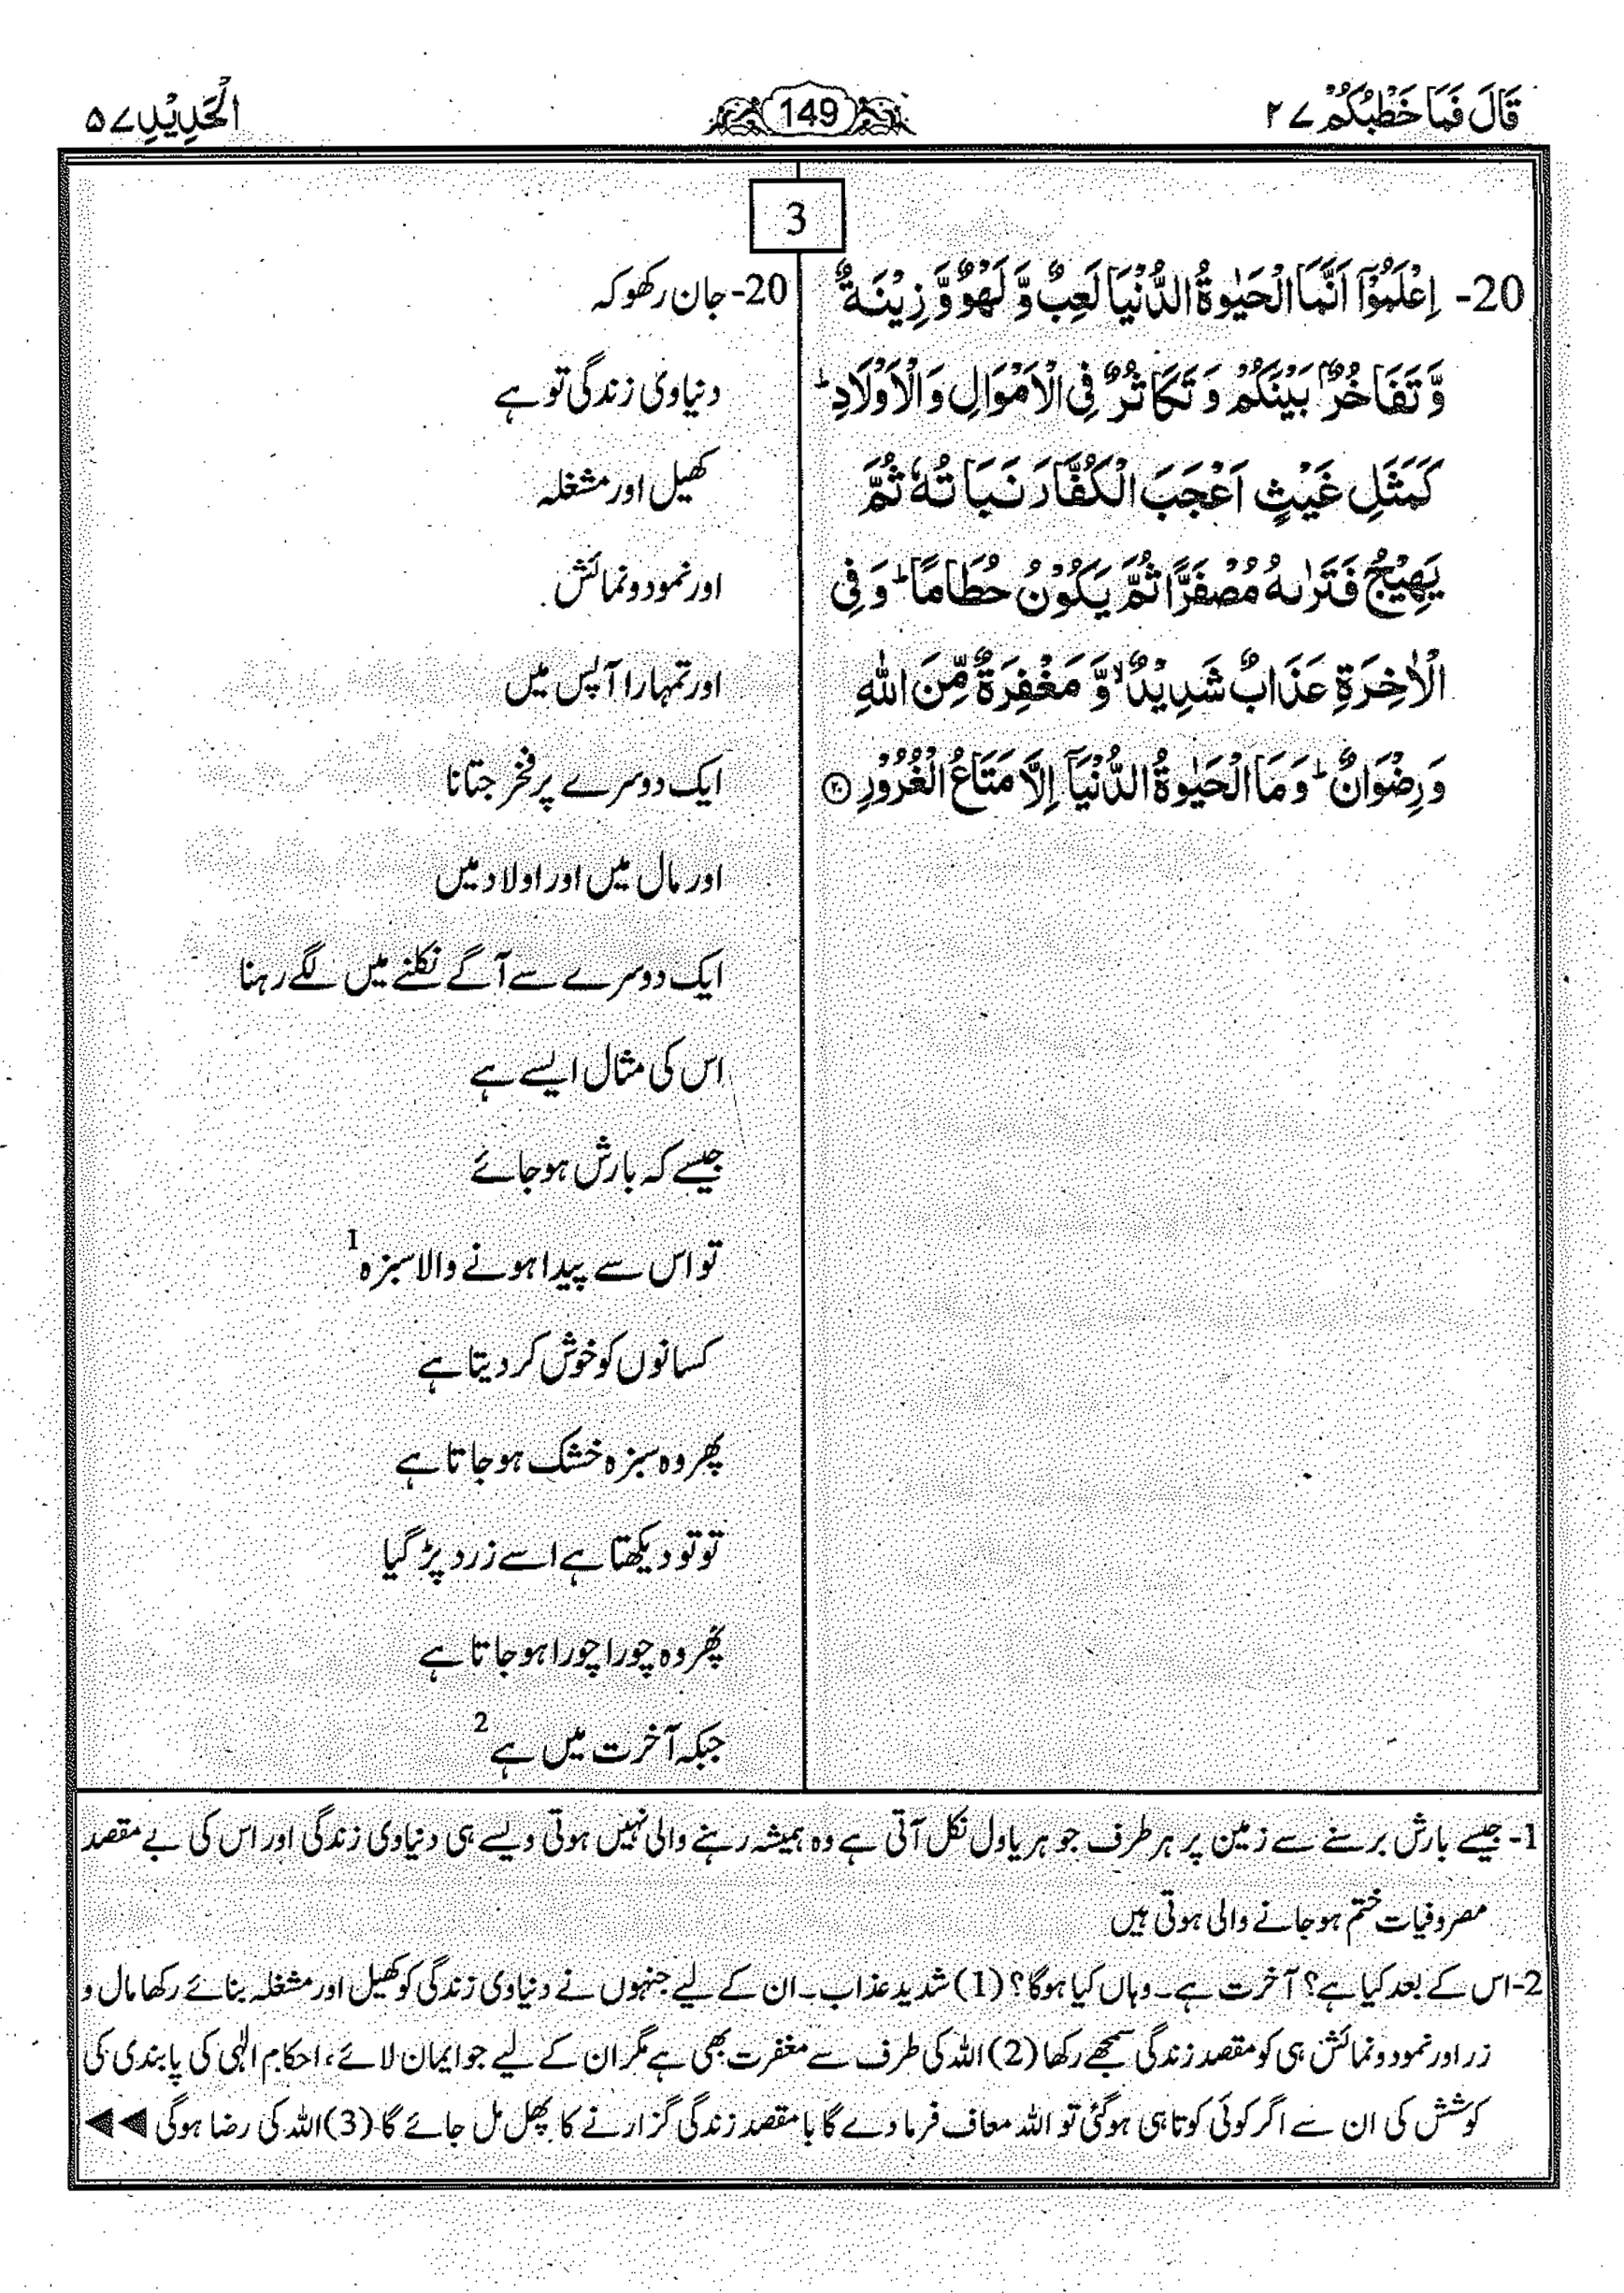 قَالَ فَمَا خَطْبُكُمْ ۲۷
149
الْحَدِيْدِ ۵۷
3
20- اِعْلَمُوْۤا اَنَّمَا الْحَيٰوةُ الدُّنْيَا لَعِبٌ وَّ لَهْوٌ وَّ زِيْنَةٌ
وَّ تَفَاخُرٌۢ بَيْنَكُمْ وَ تَكَاثُرٌ فِى الْاَمْوَالِ وَ الْاَوْلَادِ ؕ
كَمَثَلِ غَيْثٍ اَعْجَبَ الْكُفَّارَ نَبَاتُهٗ ثُمَّ
يَهِيْجُ فَتَرٰىهُ مُصْفَرًّا ثُمَّ يَكُوْنُ حُطَامًا ؕ وَ فِى
الْاٰخِرَةِ عَذَابٌ شَدِيْدٌ ۙ وَّ مَغْفِرَةٌ مِّنَ اللّٰهِ
وَ رِضْوَانٌ ؕ وَ مَا الْحَيٰوةُ الدُّنْيَاۤ اِلَّا مَتَاعُ الْغُرُوْرِ ﴿۲۰﴾
20- جان رکھو کہ
دنیاوی زندگی تو ہے
کھیل اور مشغلہ
اور نمود و نمائش
اور تمہارا آپس میں
ایک دوسرے پر فخر جتانا
اور مال میں اور اولاد میں
ایک دوسرے سے آگے نکلنے میں لگے رہنا
اس کی مثال ایسے ہے
جیسے کہ بارش ہو جائے
تو اس سے پیدا ہونے والا سبزہ 1
کسانوں کو خوش کر دیتا ہے
پھر وہ سبزہ خشک ہو جاتا ہے
تو تو دیکھتا ہے اسے زرد پڑ گیا
پھر وہ چورا چورا ہو جاتا ہے
جبکہ آخرت میں ہے 2
1- جیسے بارش برسنے سے زمین پر ہر طرف جو ہریاول نکل آتی ہے وہ ہمیشہ رہنے والی نہیں ہوتی ویسے ہی دنیاوی زندگی اور اس کی بے مقصد
مصروفیات ختم ہو جانے والی ہوتی ہیں
2- اس کے بعد کیا ہے؟ آخرت ہے۔ وہاں کیا ہوگا؟ (1) شدید عذاب۔ ان کے لیے جنہوں نے دنیاوی زندگی کو کھیل اور مشغلہ بنائے رکھا مال و
زر اور نمود و نمائش ہی کو مقصد زندگی سمجھے رکھا (2) اللہ کی طرف سے مغفرت بھی ہے مگر ان کے لیے جو ایمان لائے، احکامِ الٰہی کی پابندی کی
کوشش کی ان سے اگر کوئی کوتاہی ہوگئی تو اللہ معاف فرما دے گا با مقصد زندگی گزارنے کا پھل مل جائے گا (3) اللہ کی رضا ہوگی ◄◄